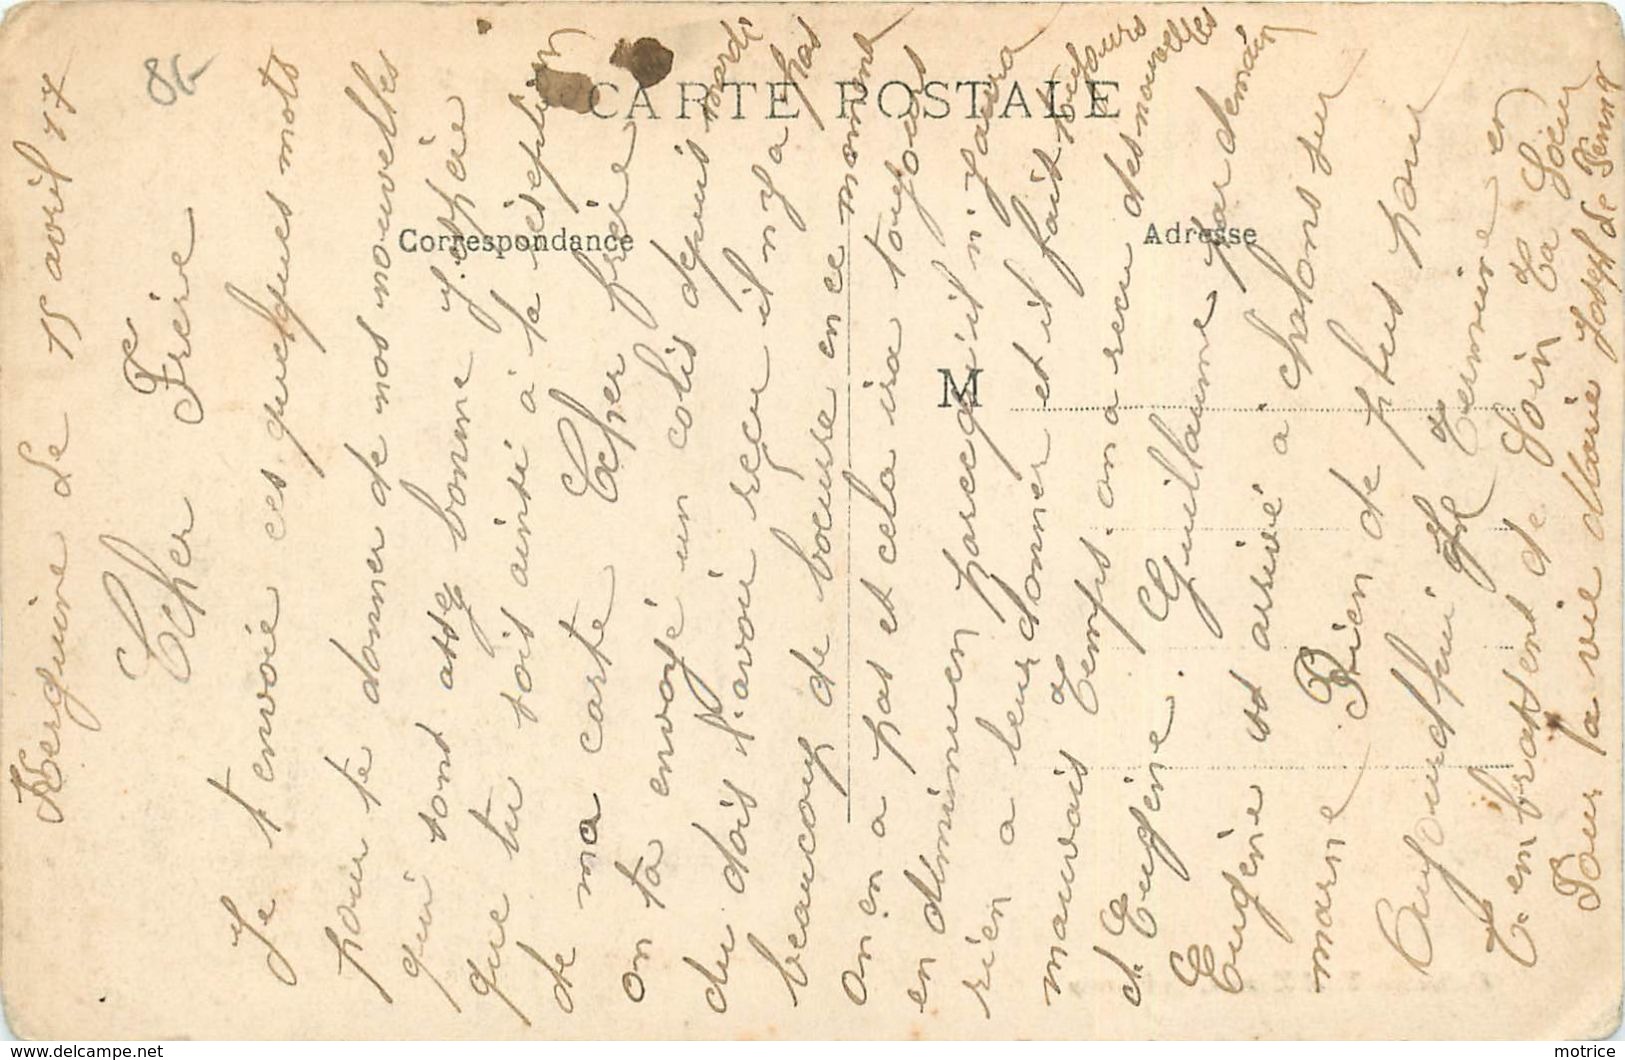 CARTE POSTALE
Correspondance
Adresse
M
85
Kerguine le 15 avril 17
Cher Frère
Je t envoie ces quelques mots
pour te donner de nos nouvelles
qui sont assez bonne J.espère
que tu sois ainsi à la réseption
de ma carte Cher frère
on ta envoyé un colis depuis mardi
du dois l'avoir reçu il n y a pas
beaucoup de boeure en ce moment
on en a pas et cela ira toujours
en diminuen parcequ'il n'y aura
rien a leur donner et il fait toujours
mauvais temps. on a recu des nouvelles
d Eugène. Guillaume par demain
Eugène est arrivé a chalons sur
marne Rien de plus pour
Aujourdhui Je termine en
T embrassent de loin Ta Soeur
Pour la vie Marie Josept de Penmar
motrice
www.delcampe.net